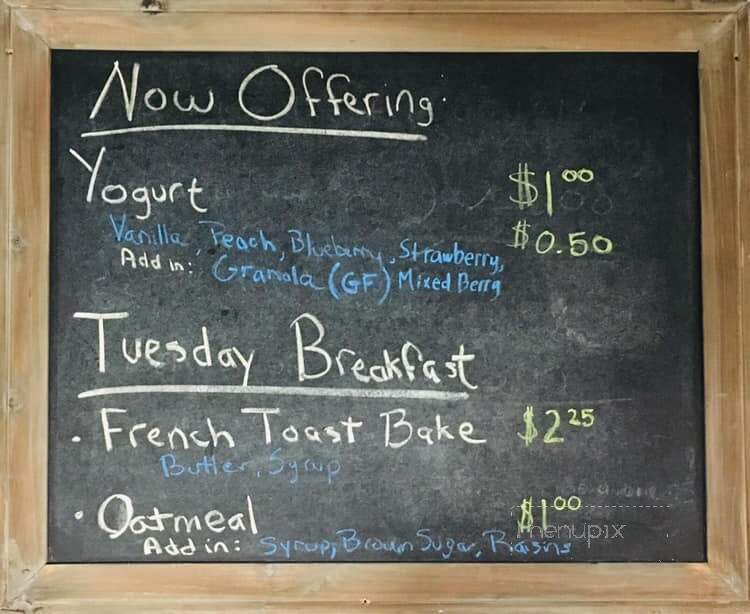 Now Offering
Yogurt $1.00
Vanilla, Peach, Blueberry, Strawberry, $0.50
Add in: Granola (GF) Mixed Berry
Tuesday Breakfast
· French Toast Bake $2.25
Butter, Syrup
· Oatmeal $1.00
menupix
Add in: Syrup, Brown Sugar, Raisins